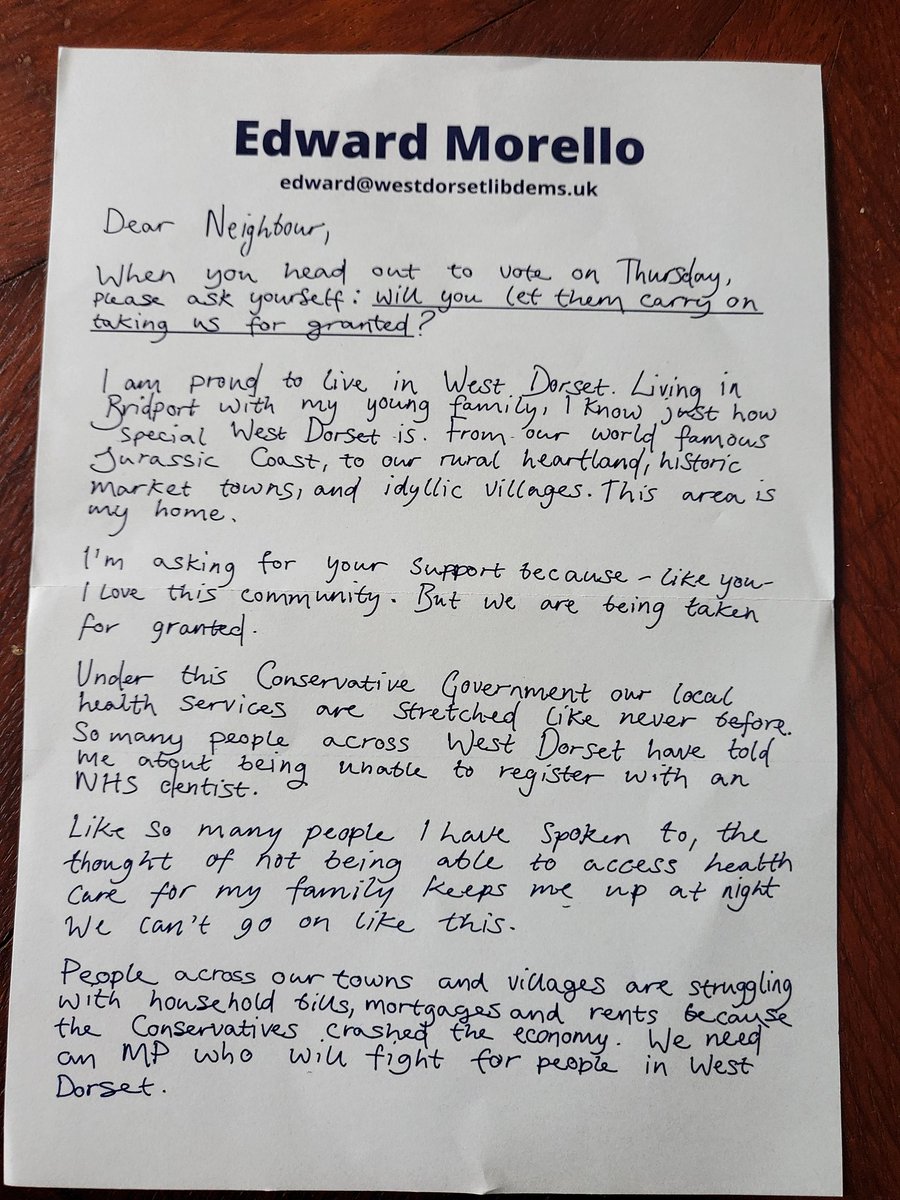 Edward Morello
edward@westdorsetlibdems.uk
Dear Neighbour,
When you head out to vote on Thursday,
please ask yourself: will you let them carry on
taking us for granted?
I am proud to live in West Dorset. Living in
Bridport with my young family, I know just how
special West Dorset is. From our world famous
Jurassic Coast, to our rural heartland, historic
market towns, and idyllic villages. This area is
my home.
I'm asking for your support because - like you -
I love this community. But we are being taken
for granted.
Under this Conservative Government our local
health services are stretched like never before.
So many people across West Dorset have told
me about being unable to register with an
NHS dentist.
Like so many people I have spoken to, the
thought of not being able to access health
care for my family keeps me up at night
We can't go on like this.
People across our towns and villages are struggling
with household bills, mortgages and rents because
the Conservatives crashed the economy. We need
an MP who will fight for people in West
Dorset.